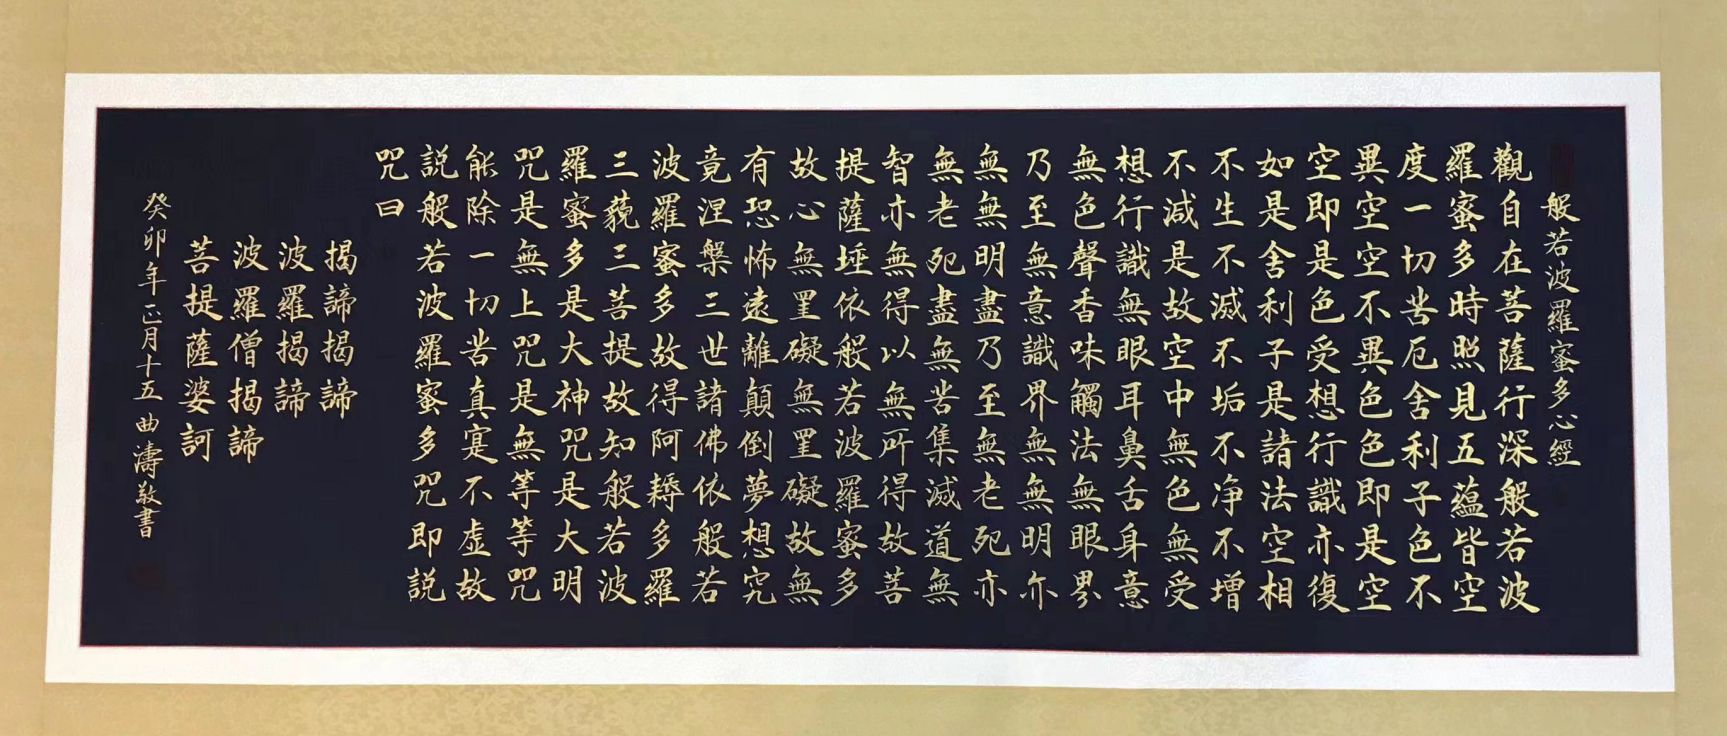 般若波羅蜜多心經
觀自在菩薩行深般若波
羅蜜多時照見五蘊皆空
度一切苦厄舍利子色不
異空空不異色色即是空
空即是色受想行識亦復
如是舍利子是諸法空相
不生不滅不垢不净不增
不減是故空中無色無受
想行識無眼耳鼻舌身意
無色聲香味觸法無眼界
乃至無意識界無無明亦
無無明盡乃至無老死亦
無老死盡無苦集滅道無
智亦無得以無所得故菩
提薩埵依般若波羅蜜多
故心無罣礙無罣礙故無
有恐怖遠離顛倒夢想究
竟涅槃三世諸佛依般若
波羅蜜多故得阿耨多羅
三藐三菩提故知般若波
羅蜜多是大神咒是大明
咒是無上咒是無等等咒
能除一切苦真寔不虛故
説般若波羅蜜多咒即説
咒曰
揭諦揭諦
波羅揭諦
波羅僧揭諦
菩提薩婆訶
癸卯年正月十五曲濤敬書